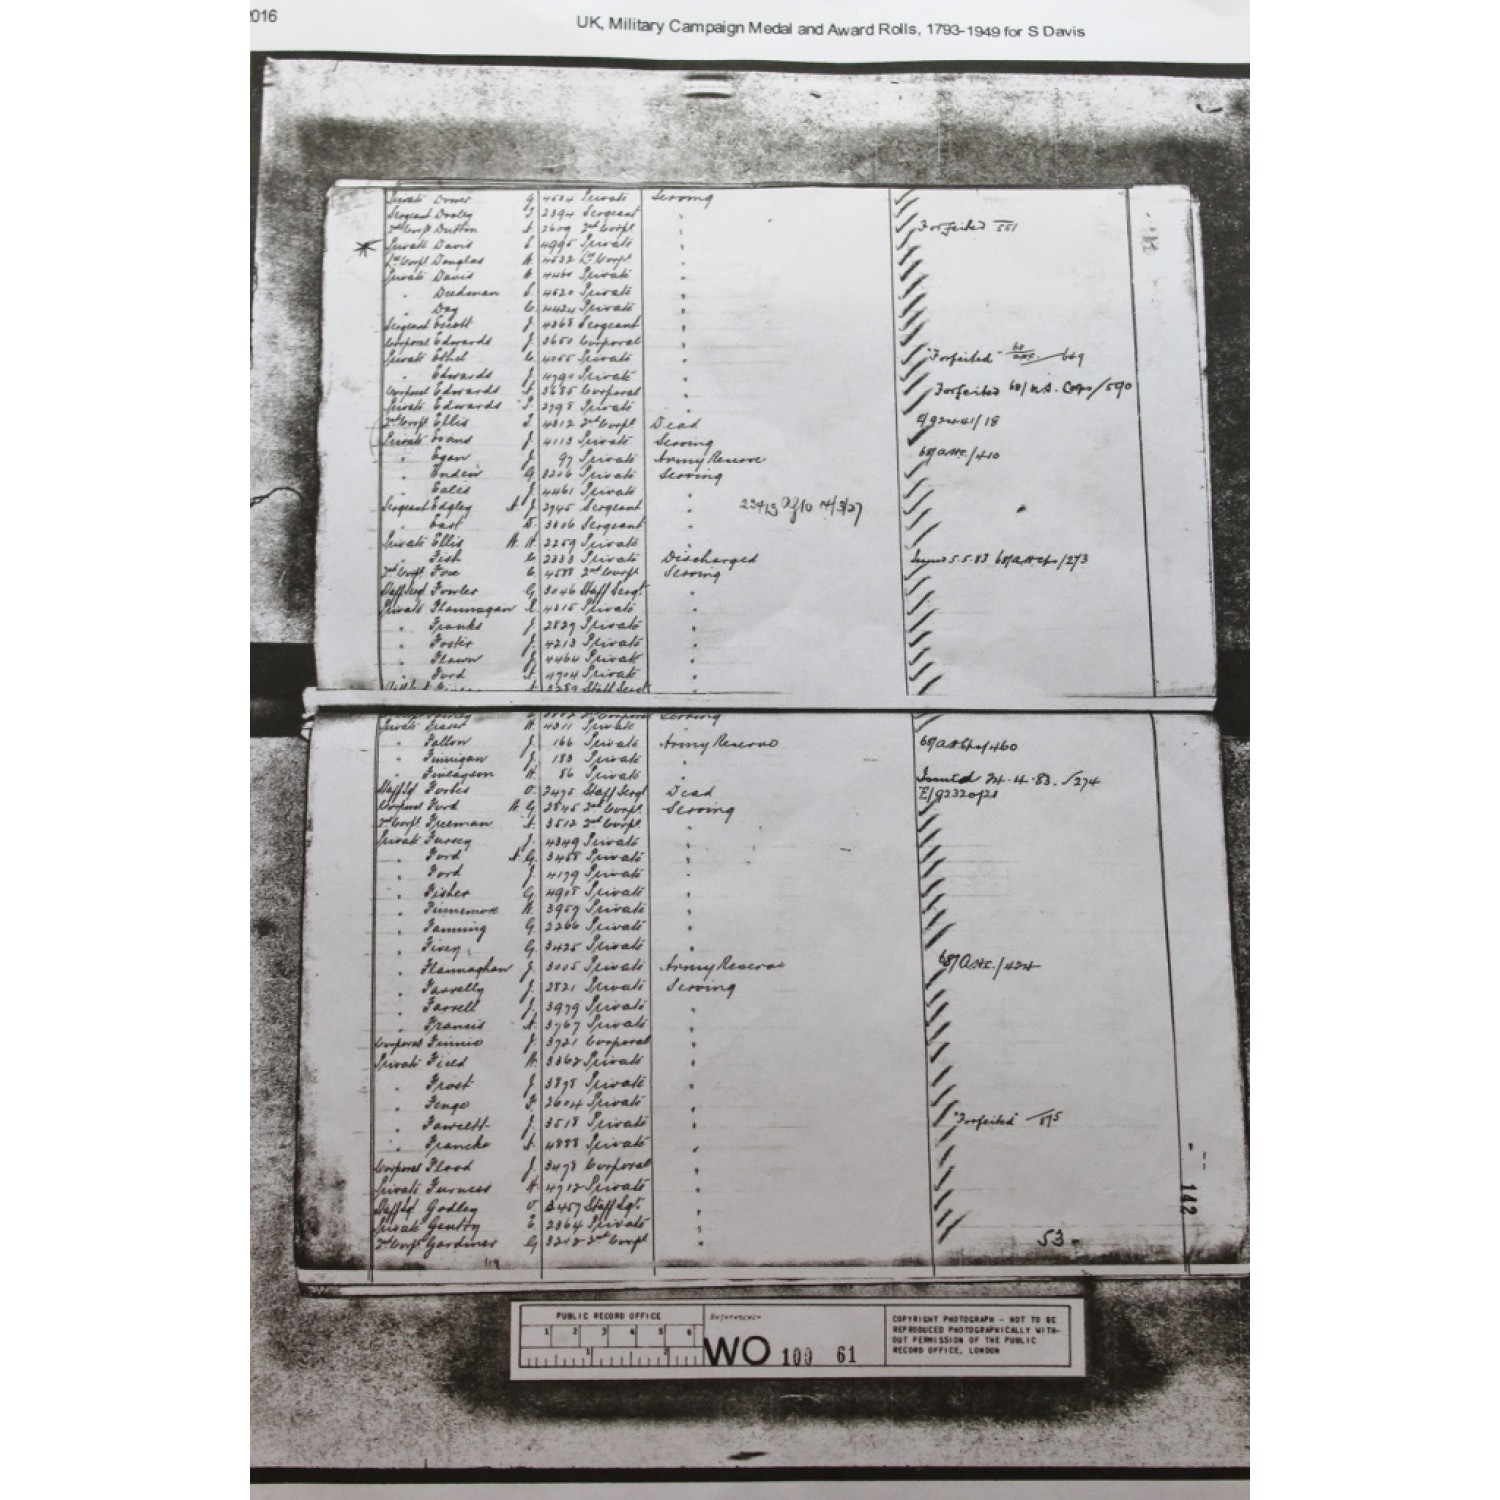 2016
UK, Military Campaign Medal and Award Rolls, 1793-1949 for S Davis
Private G 4504 Private Serving
Sergeant Dooley J 2394 Sergeant "
2nd Corpl Dutton A 2609 2nd Corpl " Forfeited 551
Private Davis S 4995 Private "
Ln Corpl Douglas A 4532 Ln Corpl "
Private Davis A 4460 Private "
" Deedman 4620 Private "
" Day C 4424 Private "
Sergeant Escott J 4368 Sergeant "
Corporal Edwards J 3650 Corporal "
Private Ethel C 4055 Private " "Forfeited" 649
" Edwards J 4790 Private "
Corporal Edwards A 3685 Corporal " Forfeited 68/ Corps/590
Private Edwards 2798 Private "
2nd Corpl Ellis 4312 2nd Corpl Dead E/92441/18
Private Evans J 4113 Private Serving
" Egan J 97 Private Army Reserve 68/AHC/410
" Enden G 3206 Private Serving
" Eales J 4461 Private "
Sergeant Edgley A J 2945 Sergeant "
" East 3806 Sergeant "
Private Ellis A H 2259 Private "
" Fish C 2333 Private Discharged Issued 5.5.83 /273
2nd Corpl Fox C 4588 2nd Corpl Serving
Staff Sergt Fowler G 3046 Staff Sergt "
Private Flannagan 4215 Private "
" Franks J 2829 Private "
" Foster J 4213 Private "
" Flawn J 4464 Private "
" Ford A 4704 Private "
3289 Staff Sergt
Serving
Private Fraser A 4311 Private
" Fallon J 166 Private Army Reserve /460
" Finnigan J 183 Private "
" Finlayson A 86 Private " Issued 24.4.83. /274
Staff Sgt Forbes O 2475 Staff Sergt Dead E/92320/21
Corporal Ford A G 2845 2nd Corpl Serving
2nd Corpl Freeman A 3512 2nd Corpl "
Private Furssey J 4349 Private "
" Ford A G 3458 Private "
" Ford J 4179 Private "
" Fisher G 4908 Private "
" Finnemore A 3959 Private "
" Fanning G 2266 Private "
" G 3425 Private "
" Flannaghan J 3005 Private Army Reserve 68/AHC/424
" Farrelly J 2821 Private Serving
" Farrell J 3979 Private "
" Francis A 3767 Private "
Corporal Finnie J 3721 Corporal "
Private Field A 3362 Private "
" Frost J 3898 Private "
" Fenge F 2604 Private "
" Fawcett J 3518 Private " "Forfeited" 575
" Francke A 4888 Private "
Corporal Flood J 3478 Corporal "
Private Furness A 4712 Private "
Staff Sgt Godley O 2457 Staff Sgt "
Private Gentry E 2364 Private "
2nd Corpl Gardiner G 3218 2nd Corpl "
53
142
PUBLIC RECORD OFFICE
1 2 3 4 5 6
1 2
Reference:-
WO 100 61
COPYRIGHT PHOTOGRAPH - NOT TO BE
REPRODUCED PHOTOGRAPHICALLY WITH-
OUT PERMISSION OF THE PUBLIC
RECORD OFFICE, LONDON